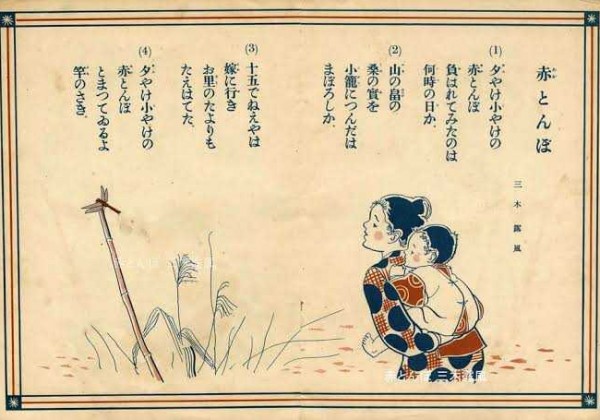 赤とんぼ
三木露風
(1)
夕やけ小やけの
赤とんぼ
負はれてみたのは
何時の日か。
(2)
山の畠の
桑の實を
小籠につんだは
まぼろしか。
(3)
十五でねえやは
嫁に行き
お里のたよりも
たえはてた。
(4)
夕やけ小やけの
赤とんぼ
とまつてゐるよ
竿のさき。